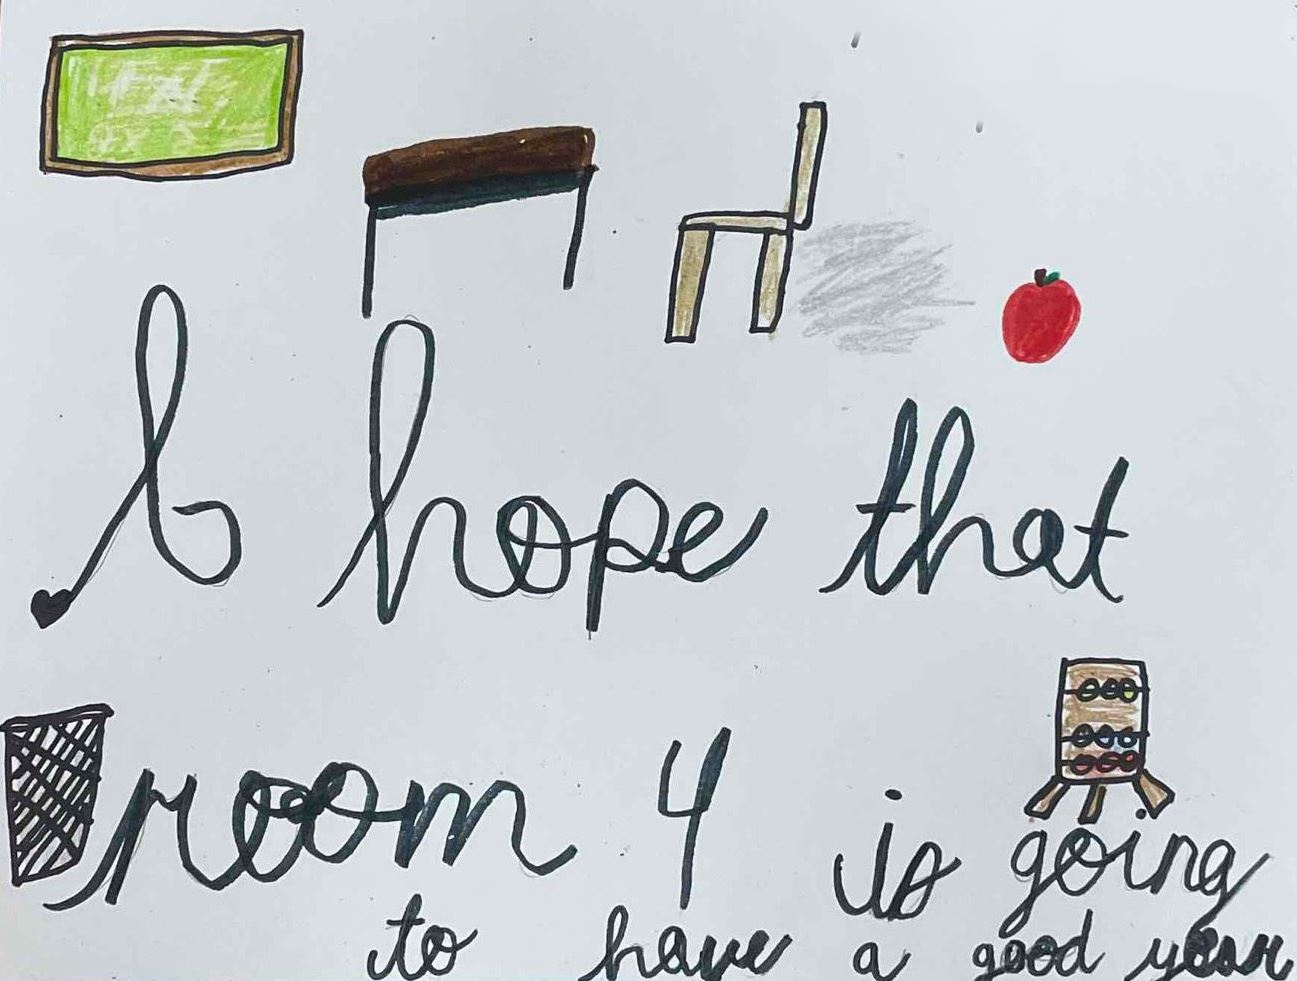 I hope that
room 4 is going
to have a good year